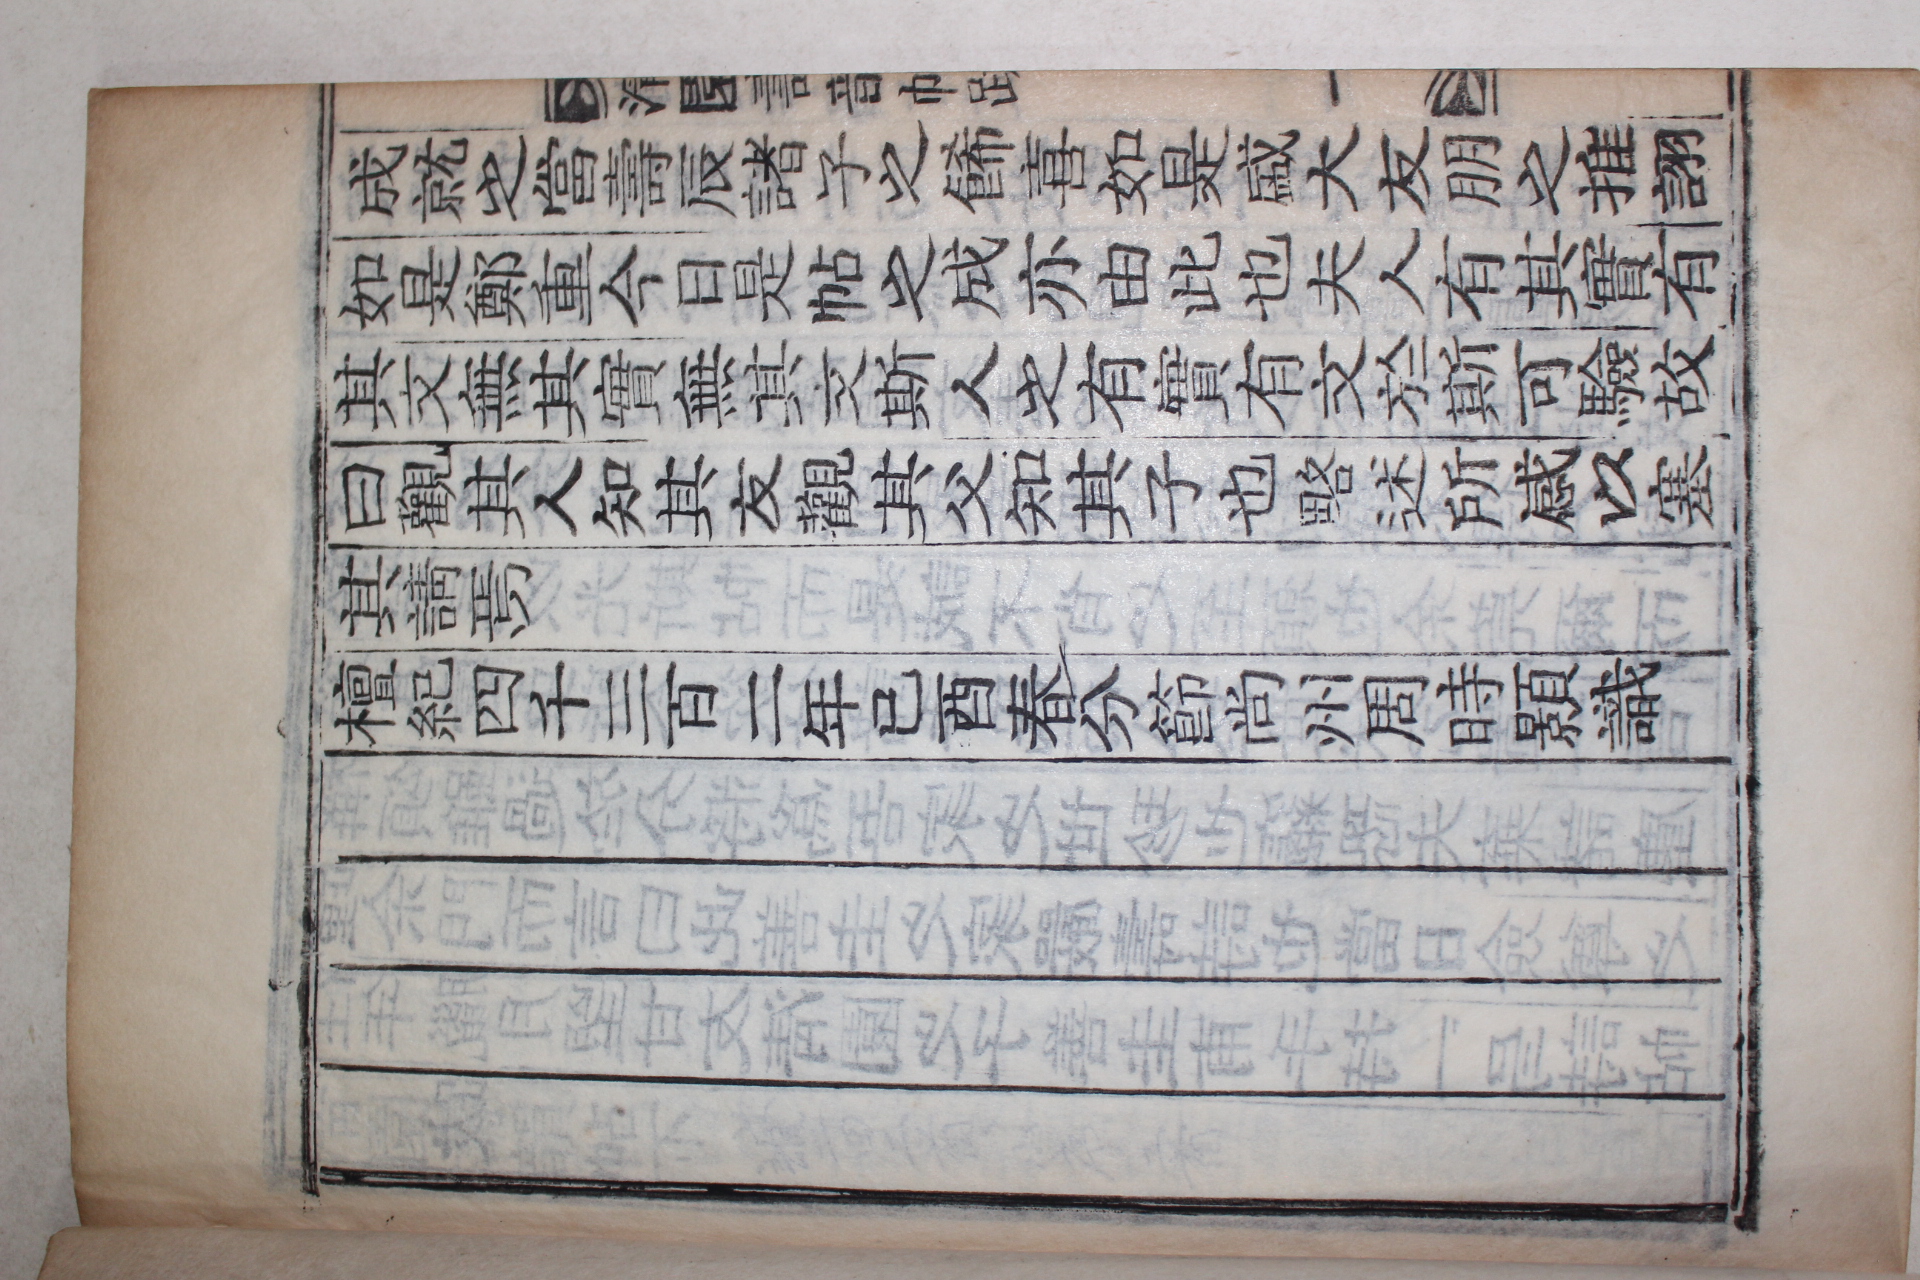 成就之當壽辰諸子之飾喜如是盛大友朋之推詡
如是鄭重今日是帖之成亦由此也夫人有其實有
其文無其實無其文斯人之有實有文於斯可驗故
曰觀其人知其友觀其父知其子也畧述所感以塞
其請焉
檀紀四千三百二年己酉春分節尙州周時顥識